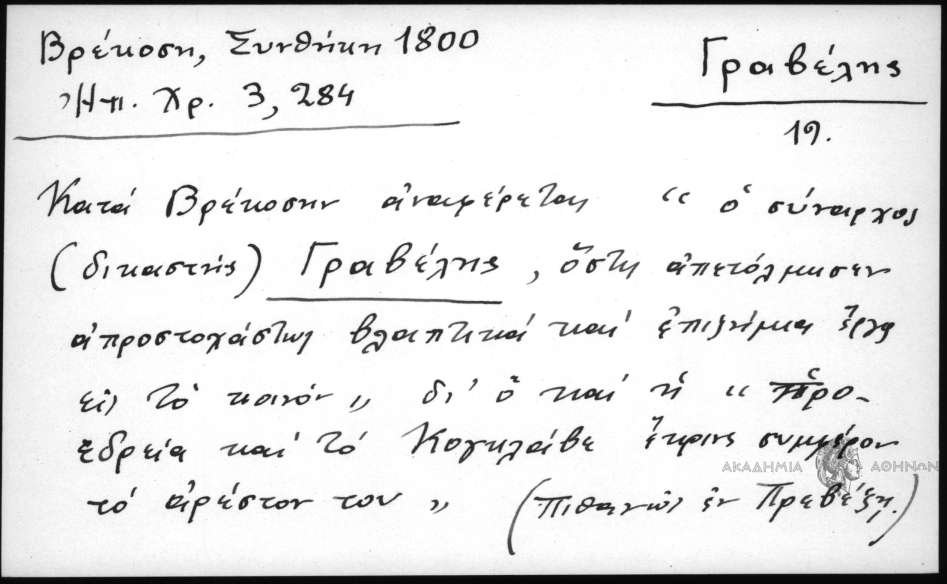 Βρέκοση, Συνθήκη 1800
Ἠπ. Χρ. 3, 284
Γραβέλης
19.
Κατά Βρέκοσην ἀναφέρεται “ ὁ σύναρχος
(δικαστής) Γραβέλης, ὅστις ἀπετόλμησεν
ἀπροστοχάστως βλαπτικά καί ἐπιζήμια ἔργα
εἰς τὸ κοινόν „ δι' ὅ καί ἡ “ Προ-
εδρεία καί τό Κογκλάβε ἔκρινε συμφέρον
τό ἀρέστον του „ (Πιθανῶς ἐν Πρεβέζῃ.)
ΑΚΑΔΗΜΙΑ ΑΘΗΝΩΝ